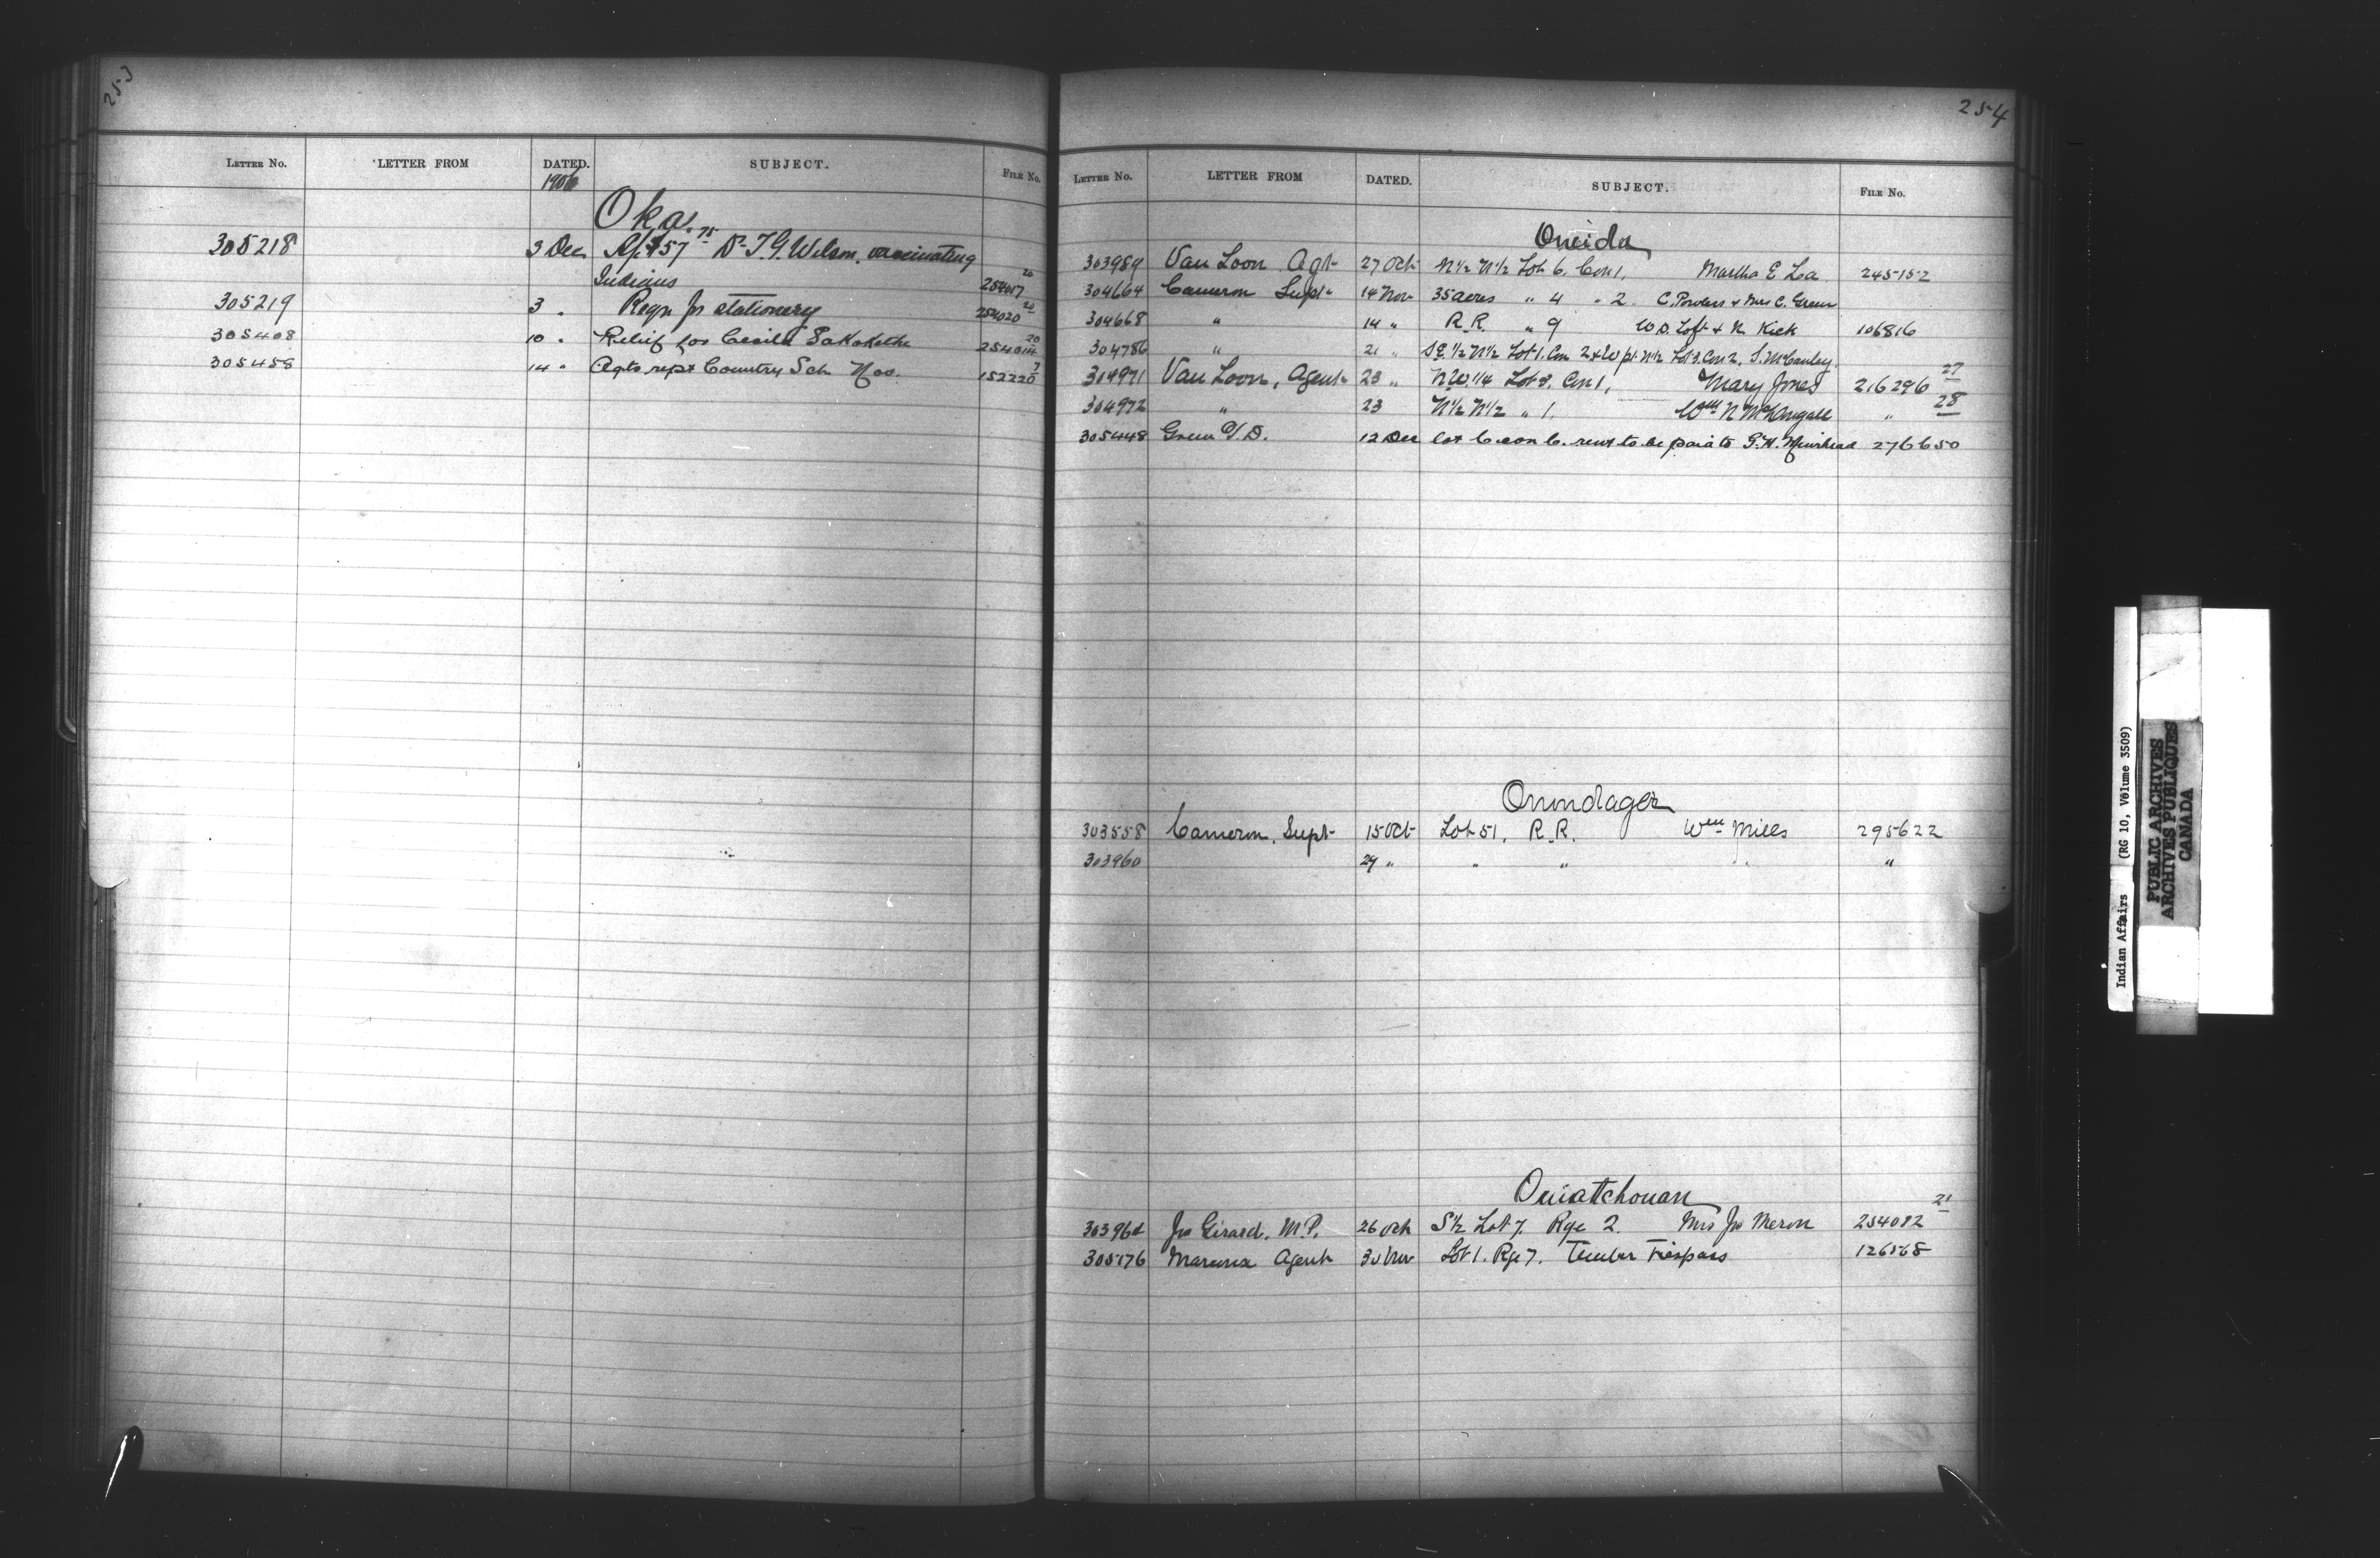 253
LETTER No. LETTER FROM DATED. SUBJECT. FILE No.
1906
Oka.
305218 3 Dec $57.75 Dr T. G. Wilson, vaccinating
Indians 254017 20
305219 3 " Reqn for stationery 254020 20
305408 10 " Relief for Cecile 254014 20
305458 14 " Agts rept Country Sch Nov. 152220 7
254
LETTER No. LETTER FROM DATED. SUBJECT. FILE No.
Oneida
303989 Van Loon Agt 27 Oct N½ N½ Lot 6. Con 1, Martha E La 245152
304664 Cameron Supt 14 Nov 35 acres " 4 " 2 C. Powless & Mrs C. Green
304668 " 14 " R.R. " 9 W. D. Loft & N. Kick 106816
304786 " 21 " SE ½ N½ Lot 1. Con 2 & W pt. N½ Lot 3. Con 2, S. McCauley.
304971 Van Loon, Agent 23 " N.W. ¼ Lot 8. Con 1, Mary Jones 216296 27
304972 " 23 N½ N½ " 1, Wm N McDougall " 28
305448 Green J. D. 12 Dec lot 6. con 6. rent to be paid to G. H. Muirhead 276650
Onondaga
303558 Cameron, Supt 15 Oct Lot 51, R.R. Wm Mills 295622
303960 29 " " " " "
Ouiatchouan
303964 Jos Girard, M.P. 26 Oct S½ Lot 7. Rge 2. Mrs Jos 254082 21
305176 Marcoux Agent 30 Nov Lot 1. Rge 7. Timber Trespass 126568
Indian Affairs (RG 10, Volume 3509)
PUBLIC ARCHIVES
ARCHIVES PUBLIQUES
CANADA